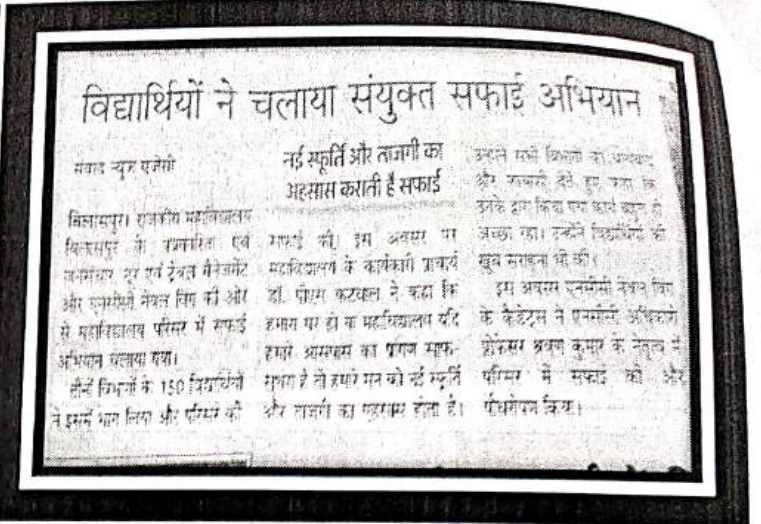 विद्यार्थियों ने चलाया संयुक्त सफाई अभियान
संवाद न्यूज एजेंसी
बिलासपुर। राजकीय महाविद्यालय
बिलासपुर के पत्रकारिता एवं
जनसंचार, टूर एवं ट्रेवल मैनेजमेंट
और एनसीसी नेवल विंग की ओर
से महाविद्यालय परिसर में सफाई
अभियान चलाया गया।
तीनों विभागों के 150 विद्यार्थियों
ने इसमें भाग लिया और परिसर की
नई स्फूर्ति और ताजगी का
अहसास कराती है सफाई
सफाई की। इस अवसर पर
महाविद्यालय के कार्यकारी प्राचार्य
डॉ. पीएस कटवाल ने कहा कि
हमारा घर हो या महाविद्यालय यदि
हमारे आसपास का प्रांगण साफ-
सुथरा है तो हमारे मन को नई स्फूर्ति
और ताजगी का एहसास होता है।
उन्होंने सभी विभागों को धन्यवाद
और देते हुए कहा कि
उनके द्वारा किया गया कार्य बहुत ही
अच्छा रहा। उन्होंने विद्यार्थियों की
खूब सराहना भी की।
इस अवसर एनसीसी नेवल विंग
के कैडेट्स ने एनसीसी अधिकारी
प्रोफेसर श्रवण कुमार के नेतृत्व में
परिसर में सफाई की और
पौधरोपण किया।